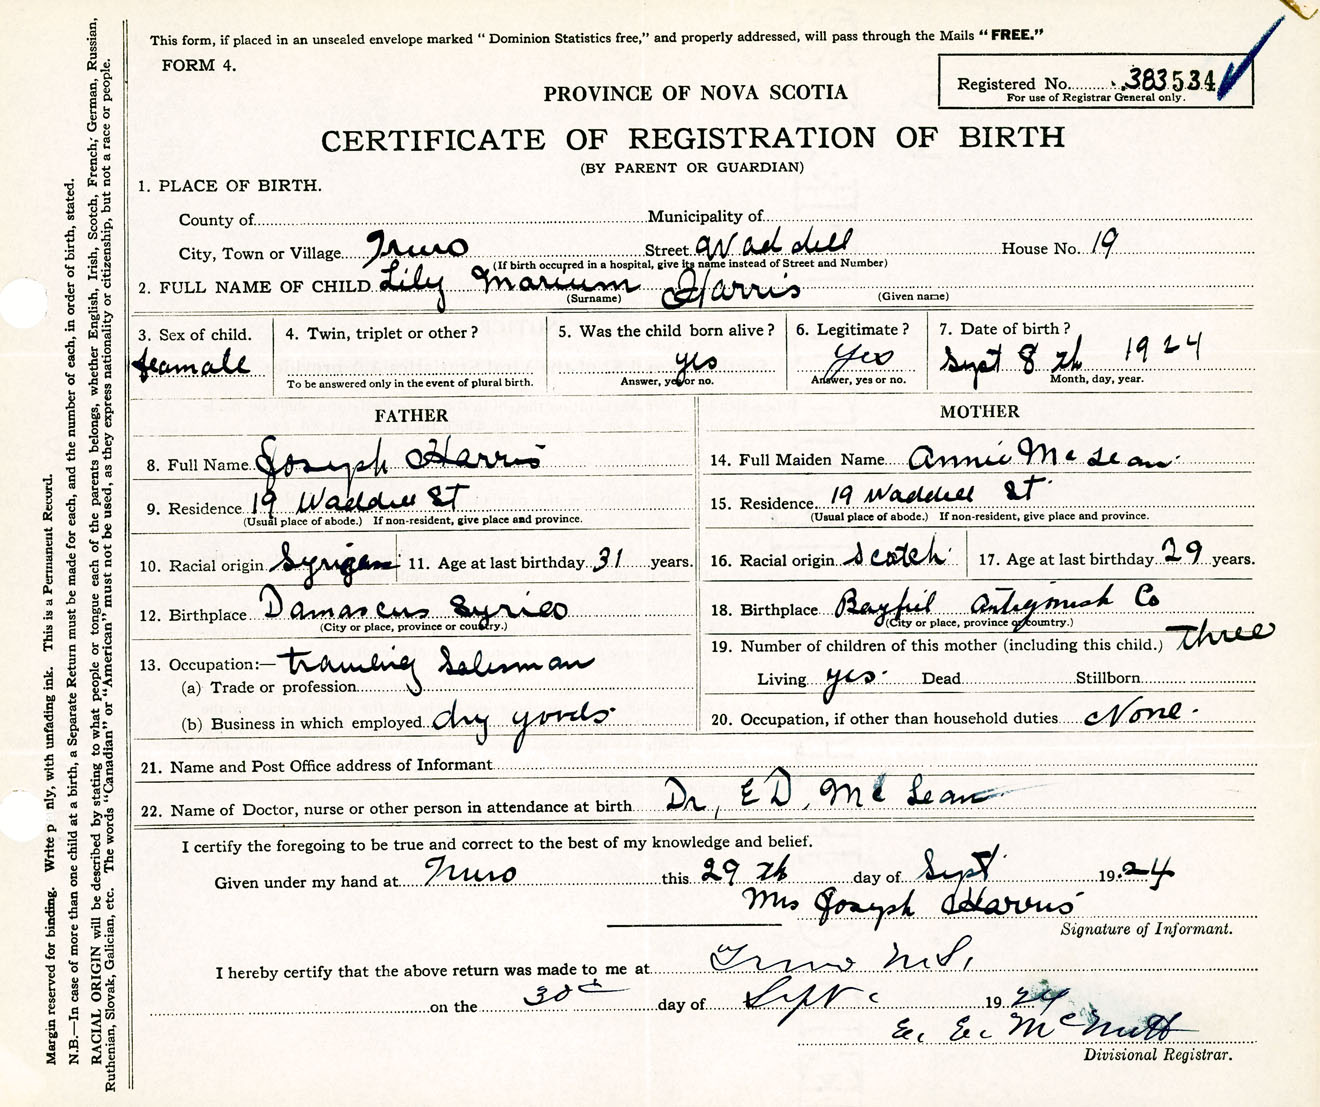 This form, if placed in an unsealed envelope marked “ Dominion Statistics free,” and properly addressed, will pass through the Mails “ FREE.”
FORM 4.
Registered No. 383534
For use of Registrar General only.
PROVINCE OF NOVA SCOTIA
CERTIFICATE OF REGISTRATION OF BIRTH
(BY PARENT OR GUARDIAN)
1. PLACE OF BIRTH.
County of Municipality of
City, Town or Village Truro Street Waddell House No. 19
(If birth occurred in a hospital, give its name instead of Street and Number)
2. FULL NAME OF CHILD Lily Marium Harris
(Surname) (Given name)
3. Sex of child. 4. Twin, triplet or other ? 5. Was the child born alive ? 6. Legitimate ? 7. Date of birth ?
feamale yes yes Sept 8 th 1924
To be answered only in the event of plural birth. Answer, yes or no. Answer, yes or no. Month, day, year.
FATHER MOTHER
8. Full Name Joseph Harris 14. Full Maiden Name Annie McLean
9. Residence 19 Waddell St 15. Residence 19 Waddell St
(Usual place of abode.) If non-resident, give place and province. (Usual place of abode.) If non-resident, give place and province.
10. Racial origin Syrigan 11. Age at last birthday 31 years. 16. Racial origin Scotch 17. Age at last birthday 29 years.
12. Birthplace Damascus Syrieo 18. Birthplace Bayfil Antigonish Co
(City or place, province or country.) (City or place, province or country.)
19. Number of children of this mother (including this child.) three
13. Occupation:— traveling Salesman
(a) Trade or profession Living yes Dead Stillborn
(b) Business in which employed dry goods 20. Occupation, if other than household duties None.
21. Name and Post Office address of Informant
22. Name of Doctor, nurse or other person in attendance at birth Dr, E D, McLean
I certify the foregoing to be true and correct to the best of my knowledge and belief.
Given under my hand at Truro this 29 th day of Sept 19 24
Mrs Joseph Harris
Signature of Informant.
I hereby certify that the above return was made to me at Truro N.S.
on the 30th day of Sept 19 24
E. E. McNutt
Divisional Registrar.
Margin reserved for binding. Write p nly, with unfading ink. This is a Permanent Record.
N.B.—In case of more than one child at a birth, a Separate Return must be made for each, and the number of each, in order of birth, stated.
RACIAL ORIGIN will be described by stating to what people or tongue each of the parents belongs, whether English, Irish, Scotch, French, German, Russian,
Ruthenian, Slovak, Galician, etc. The words “Canadian” or “American” must not be used, as they express nationality or citizenship, but not a race or people.